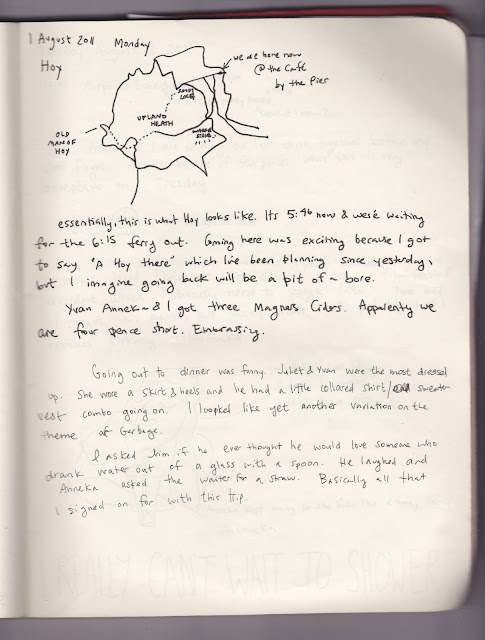 1 August 2011 Monday
Hoy
we are here now
@ the Café
by the Pier
UPLAND
HEATH
OLD
MAN OF
HOY
essentially, this is what Hoy looks like. Its 5:46 now & we're waiting
for the 6:15 ferry out. Coming here was exciting because I got
to say "A Hoy there" which I've been planning since yesterday,
but I imagine going back will be a bit of a bore.
Yvan Anneka & I got three Magners Ciders. Apparently we
are four pence short. Embrassing.
Going out to dinner was funny. Juliet & Yvan were the most dressed
up. She wore a skirt & heels and he had a little collared shirt/ sweater
vest combo going on. I looked like yet another variation on the
theme of Garbage.
I asked him if he ever thought he would love someone who
drank water out of a glass with a spoon. He laughed and
Anneka asked the waiter for a straw. Basically all that
I signed on for with this trip.
REALLY CAN'T WAIT TO SHOWER